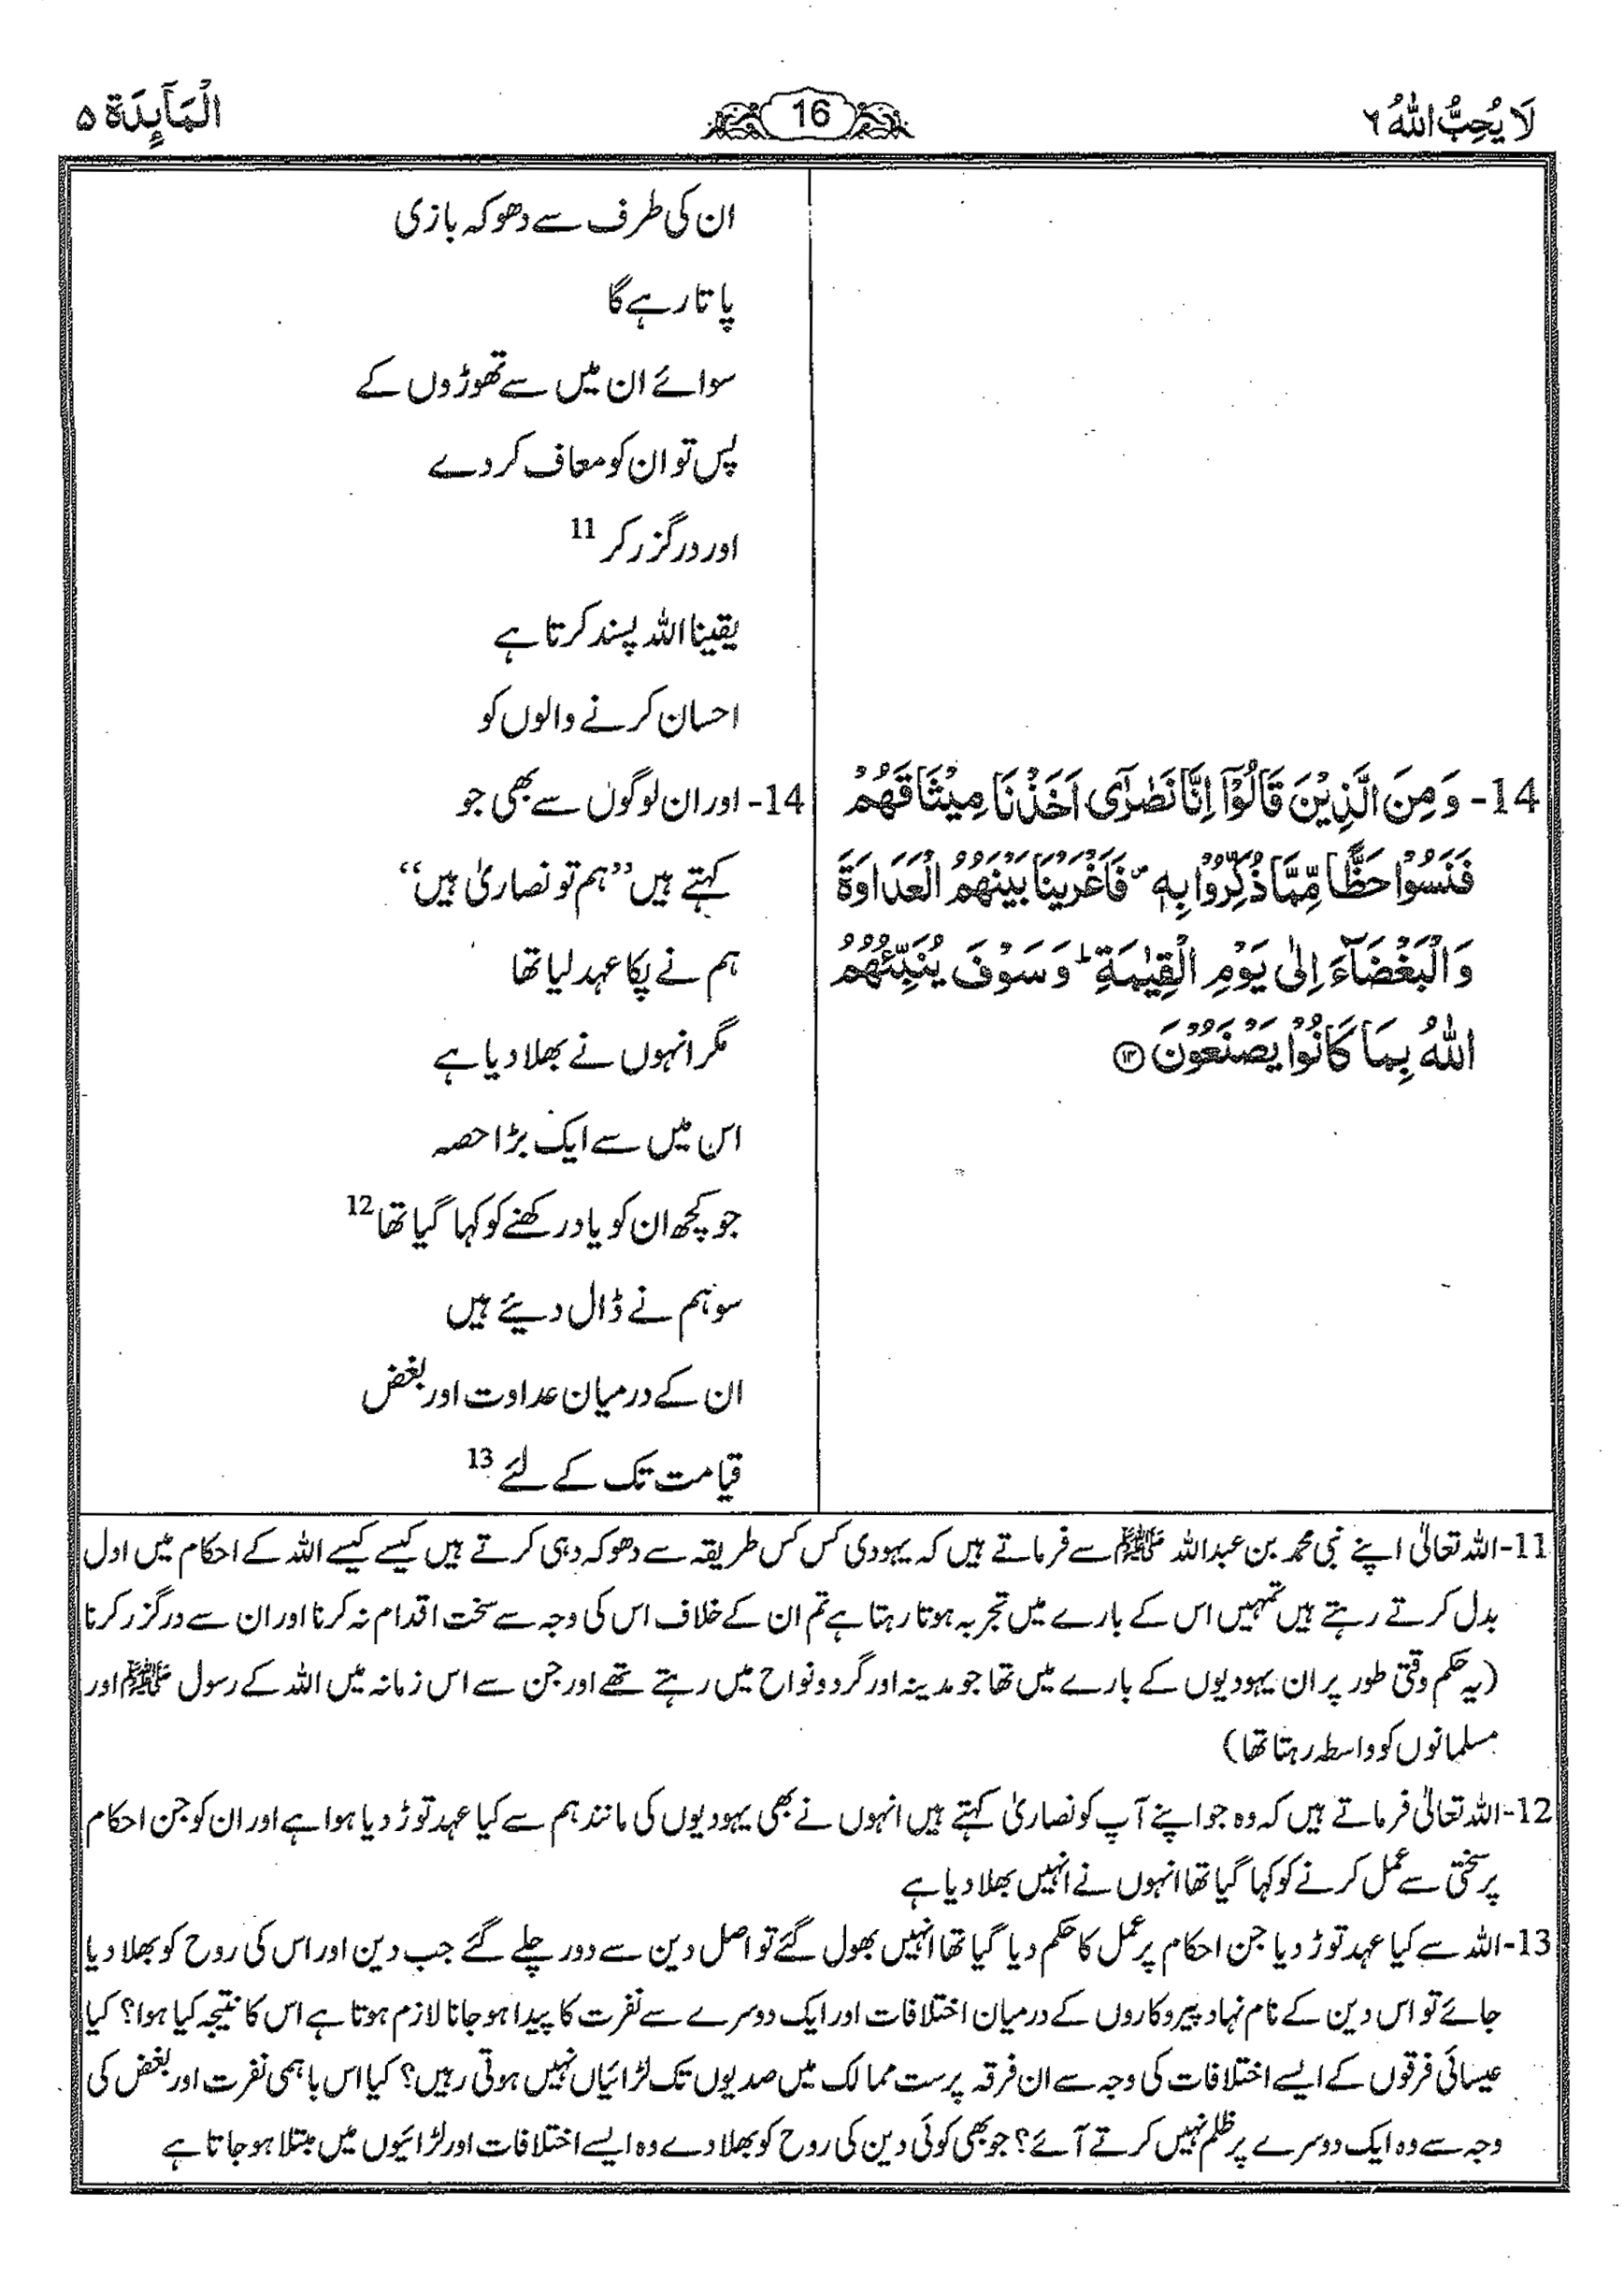 لَا يُحِبُّ اللّٰهُ ۶
16
الْمَآىِٕدَة ۵
ان کی طرف سے دھوکہ بازی
پاتا رہے گا
سوائے ان میں سے تھوڑوں کے
پس تو ان کو معاف کر دے
اور درگزر کر 11
یقینا اللہ پسند کرتا ہے
احسان کرنے والوں کو
14- وَ مِنَ الَّذِيْنَ قَالُوْٓا اِنَّا نَصٰرٰٓى اَخَذْنَا مِيْثَاقَهُمْ
فَنَسُوْا حَظًّا مِّمَّا ذُكِّرُوْا بِهٖ ۪ فَاَغْرَيْنَا بَيْنَهُمُ الْعَدَاوَةَ
وَ الْبَغْضَآءَ اِلٰى يَوْمِ الْقِيٰمَةِ ؕ وَ سَوْفَ يُنَبِّئُهُمُ
اللّٰهُ بِمَا كَانُوْا يَصْنَعُوْنَ ۝۱۴
14- اور ان لوگوں سے بھی جو
کہتے ہیں ’’ہم تو نصاریٰ ہیں‘‘
ہم نے پکا عہد لیا تھا
مگر انہوں نے بھلا دیا ہے
اس میں سے ایک بڑا حصہ
جو کچھ ان کو یاد رکھنے کو کہا گیا تھا 12
سو ہم نے ڈال دیئے ہیں
ان کے درمیان عداوت اور بغض
قیامت تک کے لئے 13
11- اللہ تعالیٰ اپنے نبی محمد بن عبداللہ ﷺ سے فرماتے ہیں کہ یہودی کس کس طریقہ سے دھوکہ دہی کرتے ہیں کیسے کیسے اللہ کے احکام میں ادل
بدل کرتے رہتے ہیں تمہیں اس کے بارے میں تجربہ ہوتا رہتا ہے تم ان کے خلاف اس کی وجہ سے سخت اقدام نہ کرنا اور ان سے درگزر کرنا
(یہ حکم وقتی طور پر ان یہودیوں کے بارے میں تھا جو مدینہ اور گردونواح میں رہتے تھے اور جن سے اس زمانہ میں اللہ کے رسول ﷺ اور
مسلمانوں کو واسطہ رہتا تھا)
12- اللہ تعالیٰ فرماتے ہیں کہ وہ جو اپنے آپ کو نصاریٰ کہتے ہیں انہوں نے بھی یہودیوں کی مانند ہم سے کیا عہد توڑ دیا ہوا ہے اور ان کو جن احکام
پر سختی سے عمل کرنے کو کہا گیا تھا انہوں نے انہیں بھلا دیا ہے
13- اللہ سے کیا عہد توڑ دیا جن احکام پر عمل کا حکم دیا گیا تھا انہیں بھول گئے تو اصل دین سے دور چلے گئے جب دین اور اس کی روح کو بھلا دیا
جائے تو اس دین کے نام نہاد پیروکاروں کے درمیان اختلافات اور ایک دوسرے سے نفرت کا پیدا ہو جانا لازم ہوتا ہے اس کا نتیجہ کیا ہوا؟ کیا
عیسائی فرقوں کے ایسے اختلافات کی وجہ سے ان فرقہ پرست ممالک میں صدیوں تک لڑائیاں نہیں ہوتی رہیں؟ کیا اس باہمی نفرت اور بغض کی
وجہ سے وہ ایک دوسرے پر ظلم نہیں کرتے آئے؟ جو بھی کوئی دین کی روح کو بھلا دے وہ ایسے اختلافات اور لڑائیوں میں مبتلا ہو جاتا ہے